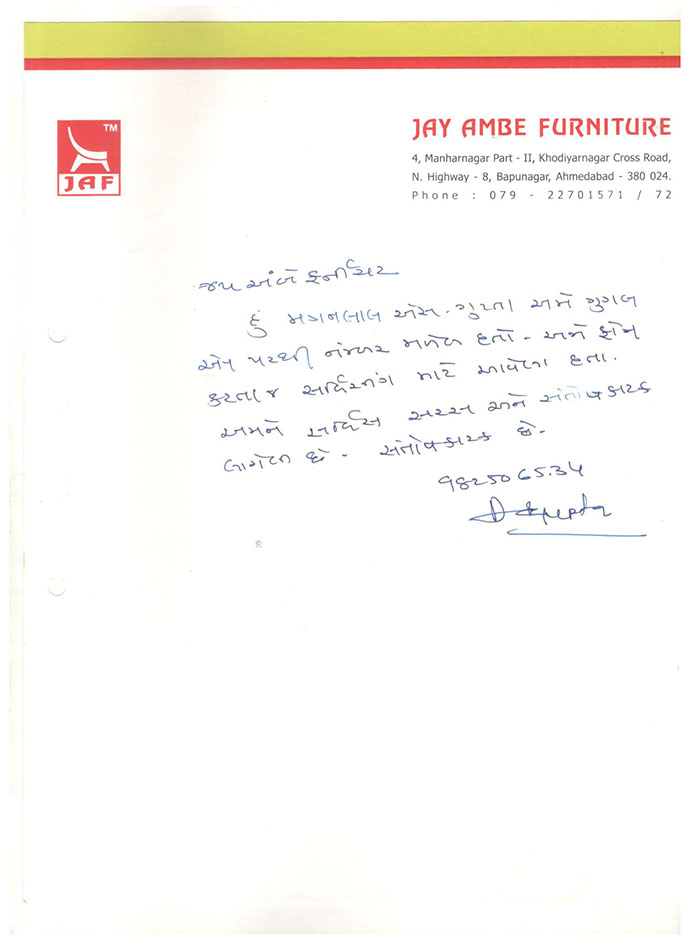 TM
JAF
JAY AMBE FURNITURE
4, Manharnagar Part - II, Khodiyarnagar Cross Road,
N. Highway - 8, Bapunagar, Ahmedabad - 380 024.
Phone : 079 - 22701571 / 72
જય અંબે ફર્નીચર
હું મગનલાલ એસ. ગુપ્તા અમે ગુગલ
એપ પરથી નંબર મળેલ હતો - અમે ફોન
કરતા જ સર્વિસીંગ માટે આવેલા હતા.
અમને સર્વિસ સરસ અને સંતોષકારક
લાગેલ છે - સંતોષકારક છે.
98250 65.34